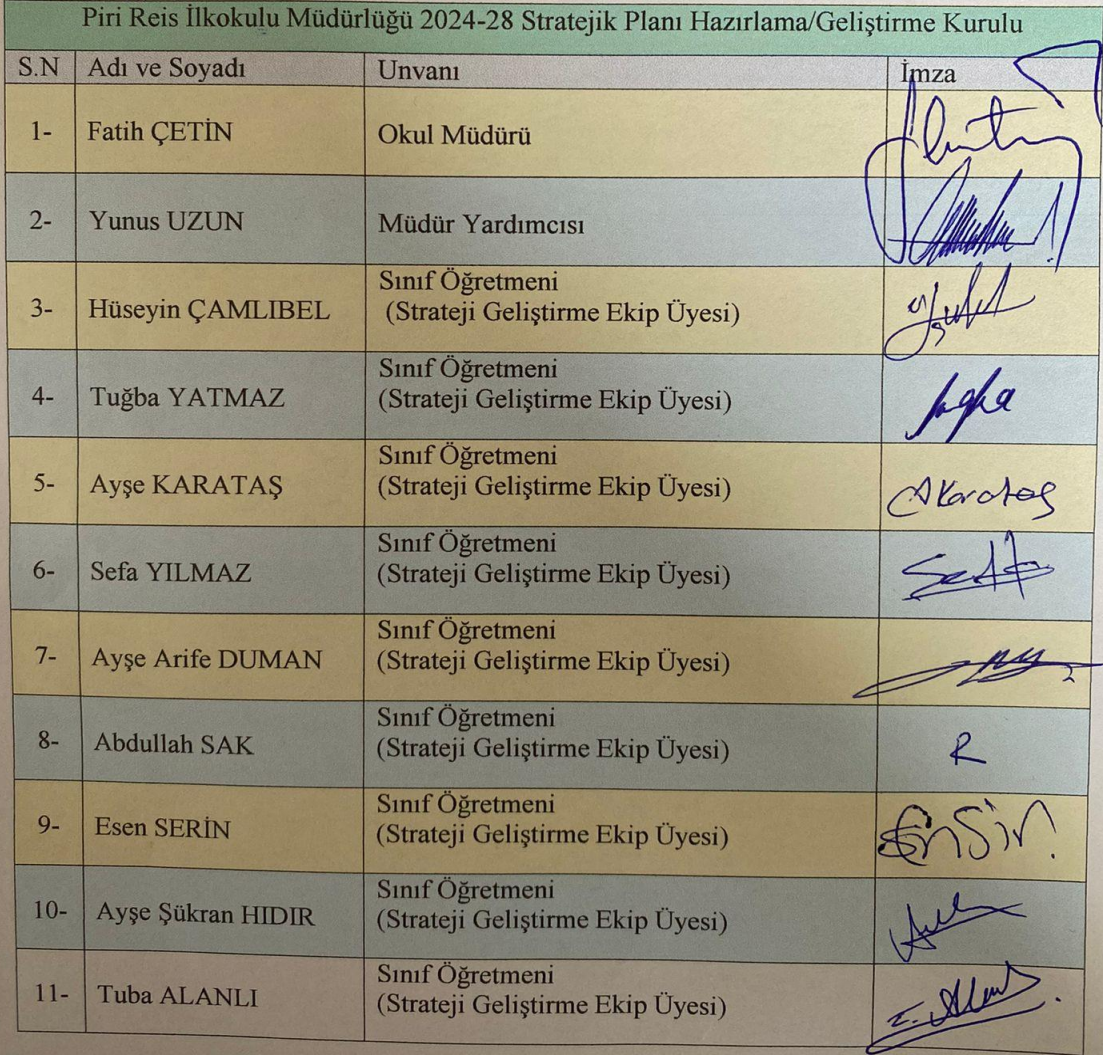 Piri Reis İlkokulu Müdürlüğü 2024-28 Stratejik Planı Hazırlama/Geliştirme Kurulu
S.N Adı ve Soyadı Unvanı İmza
1- Fatih ÇETİN Okul Müdürü
2- Yunus UZUN Müdür Yardımcısı
3- Hüseyin ÇAMLIBEL Sınıf Öğretmeni
(Strateji Geliştirme Ekip Üyesi)
4- Tuğba YATMAZ Sınıf Öğretmeni
(Strateji Geliştirme Ekip Üyesi)
5- Ayşe KARATAŞ Sınıf Öğretmeni
(Strateji Geliştirme Ekip Üyesi) AKarataş
6- Sefa YILMAZ Sınıf Öğretmeni
(Strateji Geliştirme Ekip Üyesi)
7- Ayşe Arife DUMAN Sınıf Öğretmeni
(Strateji Geliştirme Ekip Üyesi)
8- Abdullah SAK Sınıf Öğretmeni
(Strateji Geliştirme Ekip Üyesi)
9- Esen SERİN Sınıf Öğretmeni
(Strateji Geliştirme Ekip Üyesi)
10- Ayşe Şükran HIDIR Sınıf Öğretmeni
(Strateji Geliştirme Ekip Üyesi)
11- Tuba ALANLI Sınıf Öğretmeni
(Strateji Geliştirme Ekip Üyesi)